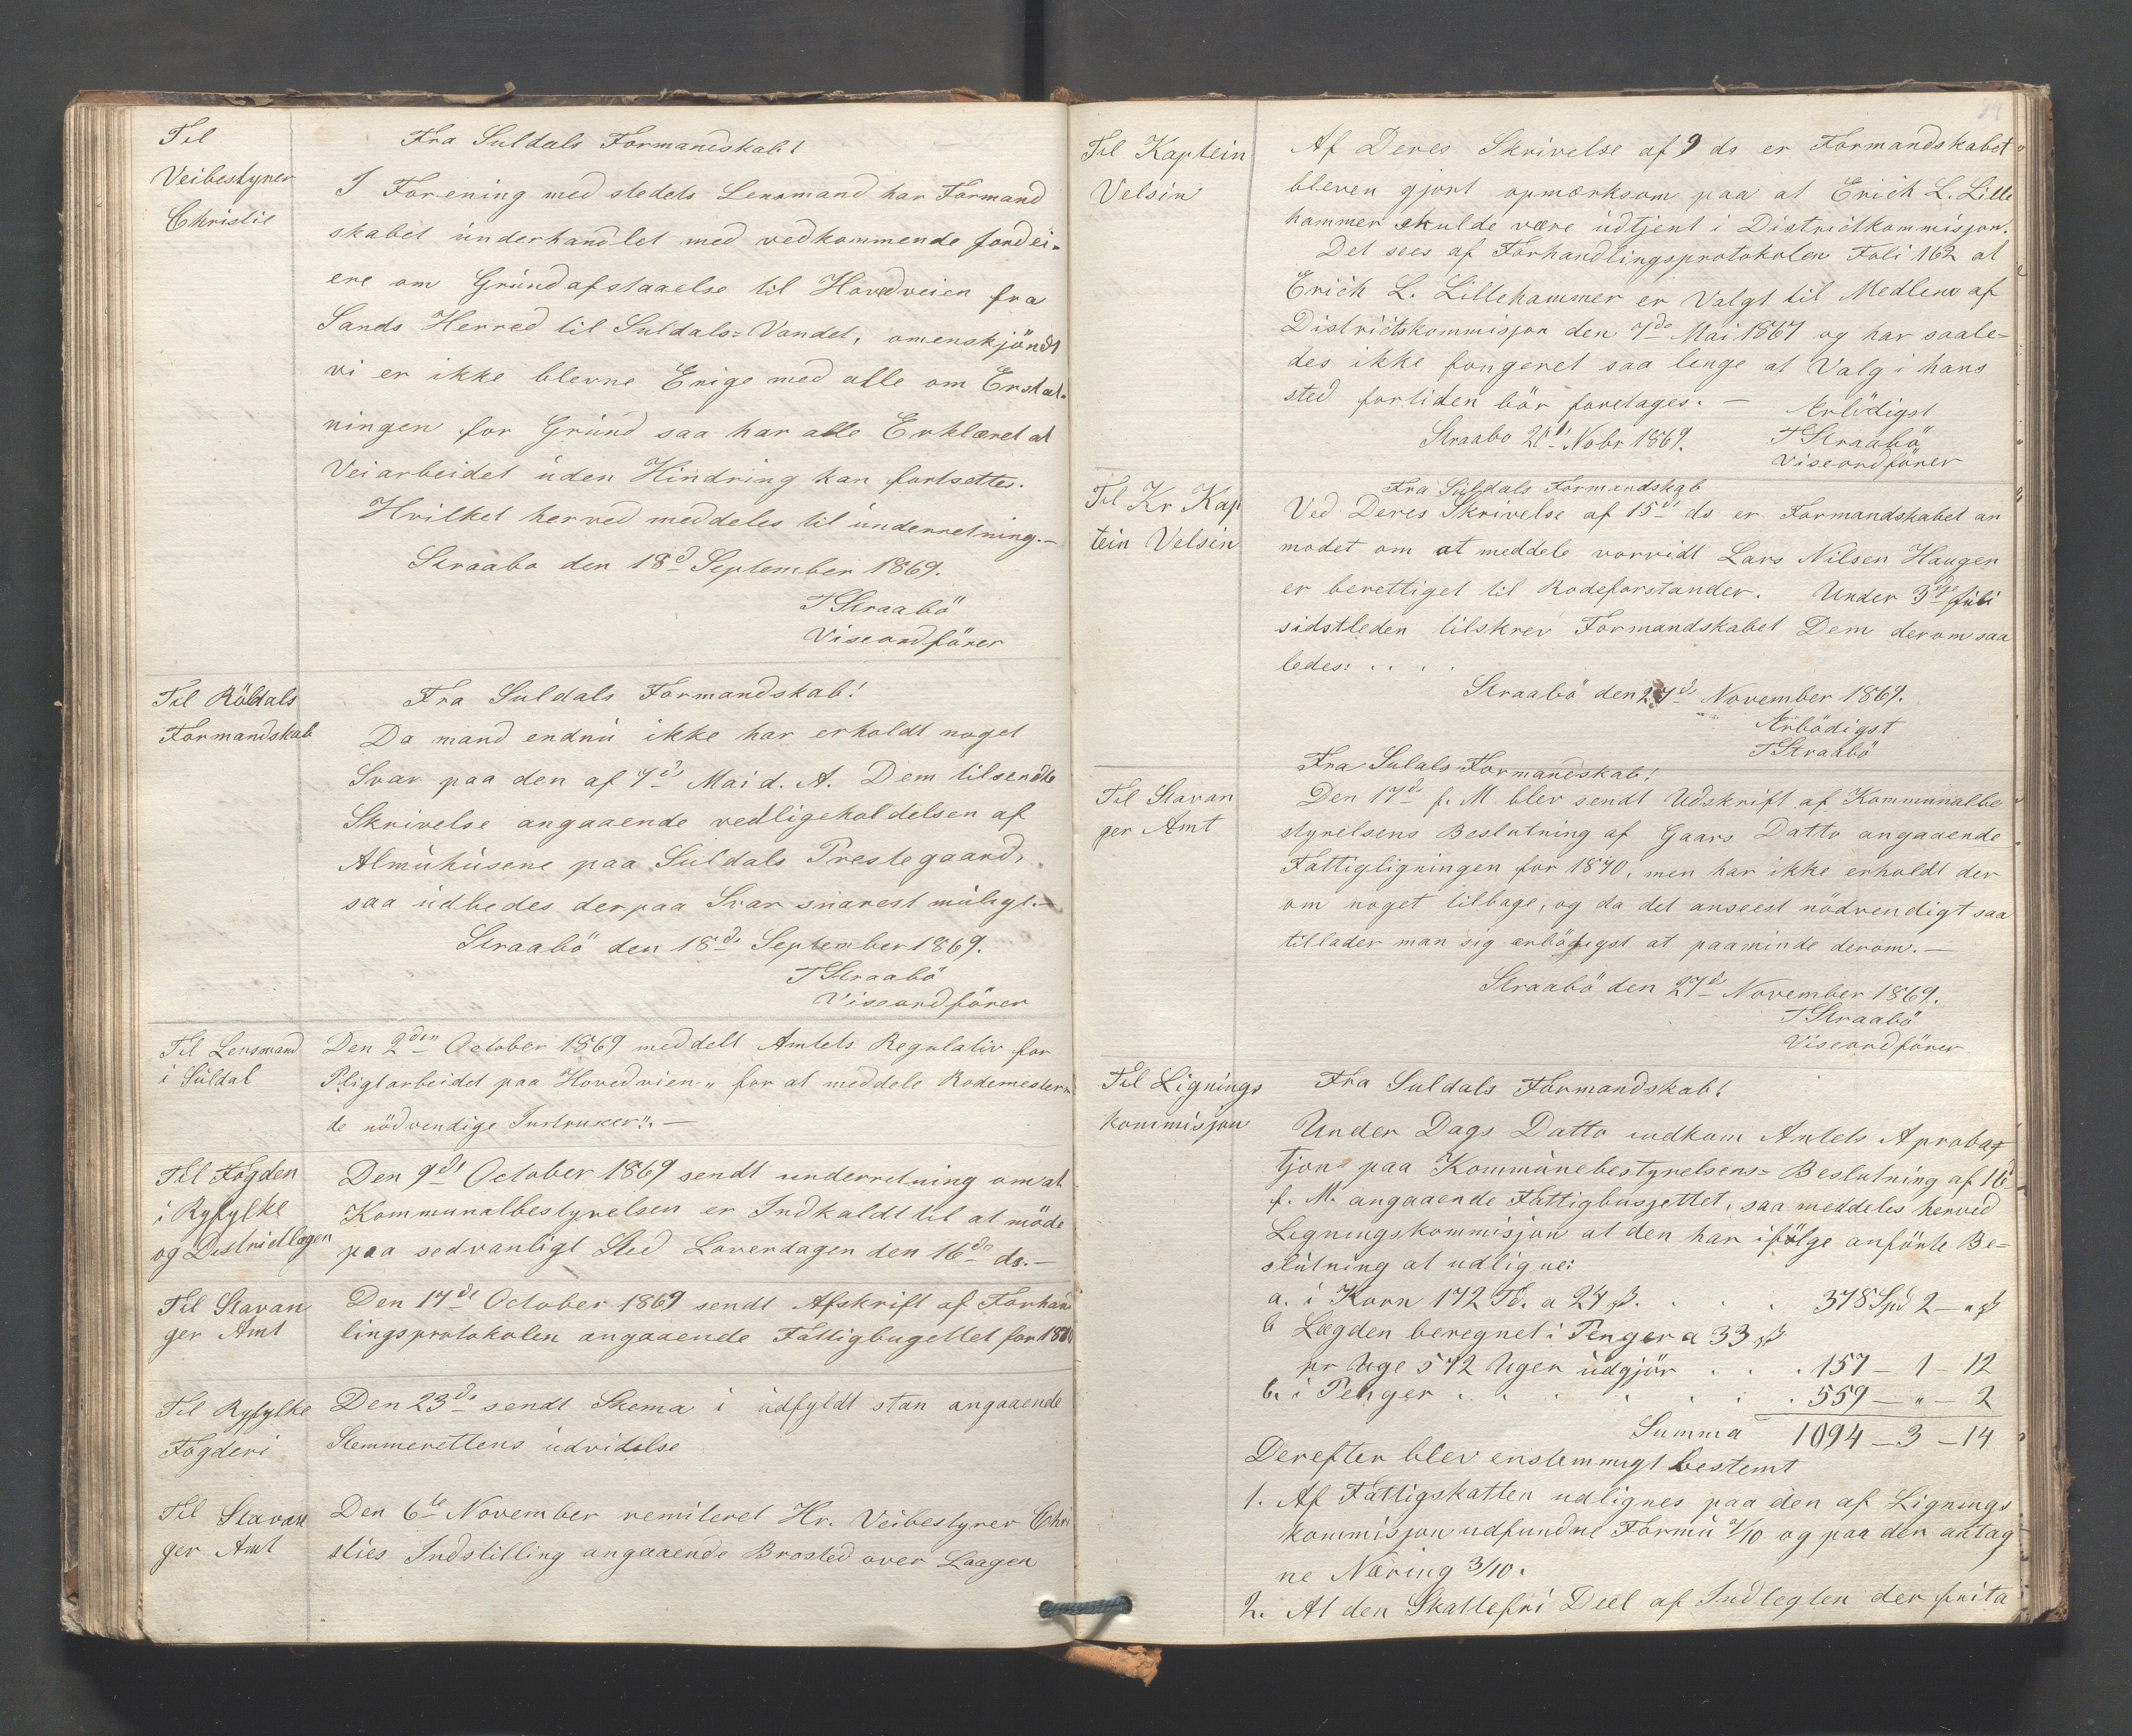 Til
Veibestyrer
Christie
Fra Suldals Formandskab!
I Forening med stedets Lensmand har Formand
skabet underhandlet med vedkommende jordei-
ere om Grundafstaaelse til Hovedveien fra
Sands Herred til Suldals=Vandet, omenskjöndt
vi er ikke blevne Enige med alle om Erstat-
ningen for Grund saa har alle Erklæret at
Veiarbeidet uden Hindring kan fortsettes.
Hvilket herved meddeles til underretning.—
Straabø den 18d September 1869.
T Straabö
Viseordförer
Til Röldals
Formandskab
Fra Suldals Formandskab!
Da mand endnu ikke har erholdt noget
Svar paa den af 7ds Mai d. A. Dem tilsendte
Skrivelse angaaende vedligeholdelsen af
Almuhusene paa Suldals Prestegaard,
saa udbedes derpaa Svar snarest muligt.—
Straabö den 18ds September 1869.
T Straabö
Viseordförer
Til Lensmand
i Suldal
Den 2den October 1869 meddelt Amtets Regulativ for
Pligtarbeidet paa Hovedveien „for at meddele Rodemestern
de nödvendige Instruxer“. —
Til Fogden
i Ryfylke
og Distriktlegen
Den 9ds October 1869 sendt underretning om at
Kommunalbestyrelsen er Indkaldt til at möde
paa sedvanligt Sted Löverdagen den 16de ds.—
Til Stavan
ger Amt
Den 17de October 1869 sendt Afskrift af Forhan
lingsprotokolen angaaende Fattigbugettet for 1870
Til Ryfylke
Fögderi
Den 23ds sendt Skema i udfyldt stan angaaende
Stemmerettens udvidelse
Til Stavan
ger Amt
Den 6te November remiteret Hr. Veibestyrer Chri
sties Indstilling angaaende Brosted over Laagen
Til Kaptein
Velsin
Af Deres Skrivelse af 9 ds er Formandskabet
bleven gjort opmærksom paa at Erich L. Lille
hammer skulde være udtjent i Districtkommisjon.
Det sees af Forhandlingsprotokolen Foli 162 at
Erich L. Lillehammer er Valgt til Medlem af
Districtskommisjon den 7de Mai 1867 og har saale-
des ikke fongeret saa lenge at Valg i hans
sted fortiden bör foretages. —
Straabø 20ds Nobr 1869.
Ærbödigst
T Straabö
viseordförer
Til Kr Kap
tein Velsin
Fra Suldals Formandskab
Ved Deres Skrivelse af 15ds ds er Formandskabet an
modet om at meddele vorvidt Lars Nilsen Haugen
er berettiget til Rodeforstander. Under 3die Juli
sidstleden tilskrev Formandskabet Dem derom saa
ledes: . . . .
Straabö den 27ds November 1869.
Ærbödigst
T Straabö
Til Stavan
ger Amt
Fra Sulals Formandskab!
Den 17ds f. M blev sendt Udskrift af Kommunalbe
styrelsens Beslutning af Gaars Datto angaaende
Fattigligningen for 1870, men har ikke erholdt der
om noget tilbage, og da det anseest nödvendigt saa
tillader man sig ærbödigst at paaminde derom.—
Straabö den 27ds November 1869.
T Straabö
Viseordförer
Til Lignings
kommisjon
Fra Suldals Formandskab!
Under Dags Datto indkom Amtets Aprobat
tjon paa Kommunebestyrelsens= Beslutning af 16
f. M. angaaende Fattigbusjettet, saa meddeles herved
Legningskommisjon at den har ifölge anförte Be=
slutning at udligne:
a. i Korn 172 Td. a 24 ß. . . . . 378 Spd 2 — „ ß
b Lægden beregnet i Penger a 33 ß
pr Uge 572 Uger udgjör . . . 157 — 1 — 12
b. i Penger . . . . . . . 559 — „ — 2
Summa 1094 — 3 — 14
Derefter blev enstemmigt bestemt
1. Af Fattigskatten udlignes paa den af Lignings
kommisjon udfundne Formu 7/10 og paa den antag
ne Næring 3/10.
2. At den Skattefri Deel af Indtegten der frita